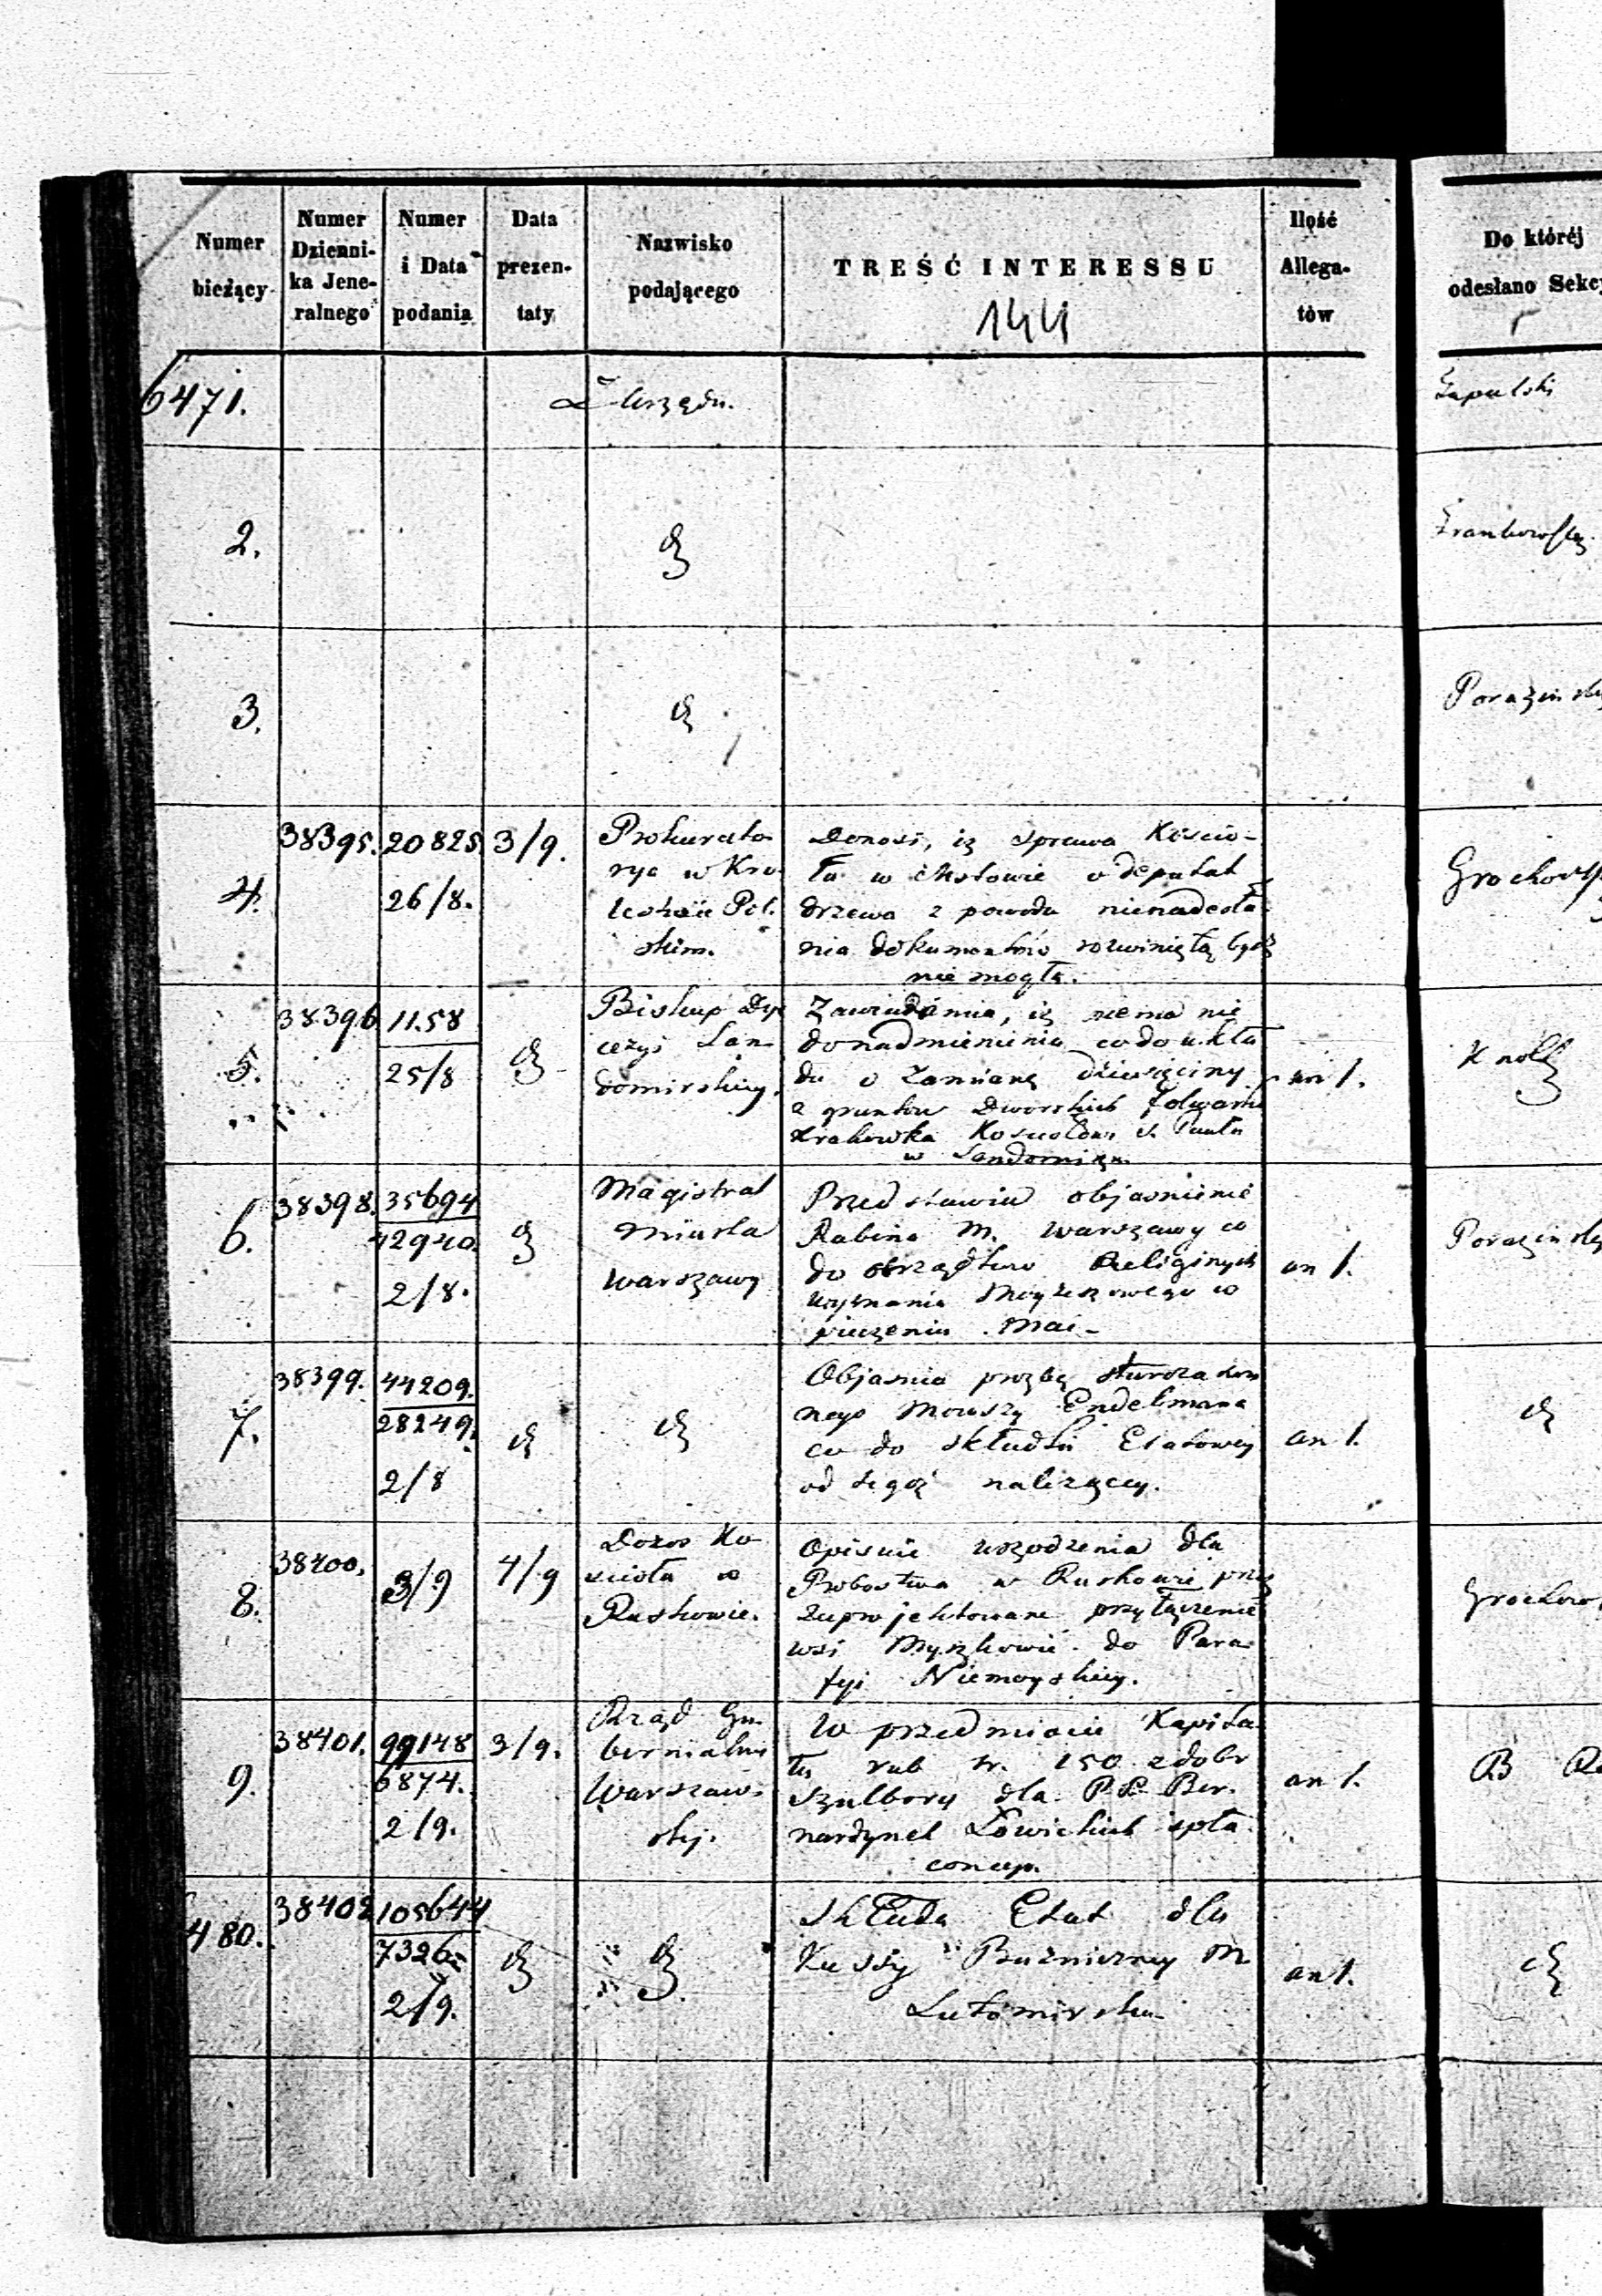 Numer bieżący
Numer Dzienni-ka Jene-ralnego
Numer i Data podania
Data prezen-taty
Nazwisko podającego
TREŚĆ INTERESSU
144
Ilość Allega-tów
Do któréj odesłano Sekcy
6471.
Z Urzędu.
2.
3.
4.
38395.
20825
26/8.
3/9.
Prokurato-
rya w Kró-
lestwie Pol-
skim.
Donosi, iż sprawa Kościo-
ła w Mstowie o deputat
drzewa z powodu nienadesła-
nia dokumentów rozwiniętą być
nie mogła.
Grochows
5.
38396
1158
25/8
Biskup Dye
cezyi San-
domirskiey.
Zawiadamia, iż niema nic
do nadmienienia co do ukła
du o Zamianę dziesięciny
z gruntów Dworskich folwarku
Krakówka Kościołowi S. Pawła
w Sandomirzu.
an 1.
Knoll
6.
38398.
35694
12940.
2/8.
Magistrat
Miasta
Warszawy
Przedstawia objasnienie
Rabina M. Warszawy co
do obrządków Religijnych
wyznania Mojżeszowego w
pieczeniu Mac-
an 1.
Porazinsky
7.
38399.
44209.
28249.
2/8
Objasnia prozbę starozakon
nego Mowszy Endelmana
co do składki Etatowey
od tegoż należącey.
an 1.
8.
38400.
3/9
4/9
Dozór Ko
scioła w
Ruskowie.
Opisuie uszkodzenia dla
Probostwa w Ruskowie przez
zaprojektowane przyłączenie
wsi Myszkowic do Para-
fyi Niemoyskiey.
Grochow
9.
38401.
99148
6874.
2/9.
3/9.
Rząd Gu-
bernialny
Warszaw-
ski.
W przedmiocie Kapita-
łu rub sr. 150 z dobr
Szulbory dla P.P. Ber-
nardynek Łowickich spła-
an 1.
480.
38402
105644
7326
2/9.
Składa Etat dla
Kassy Bużniczney M.
Lutomirska
an 1.